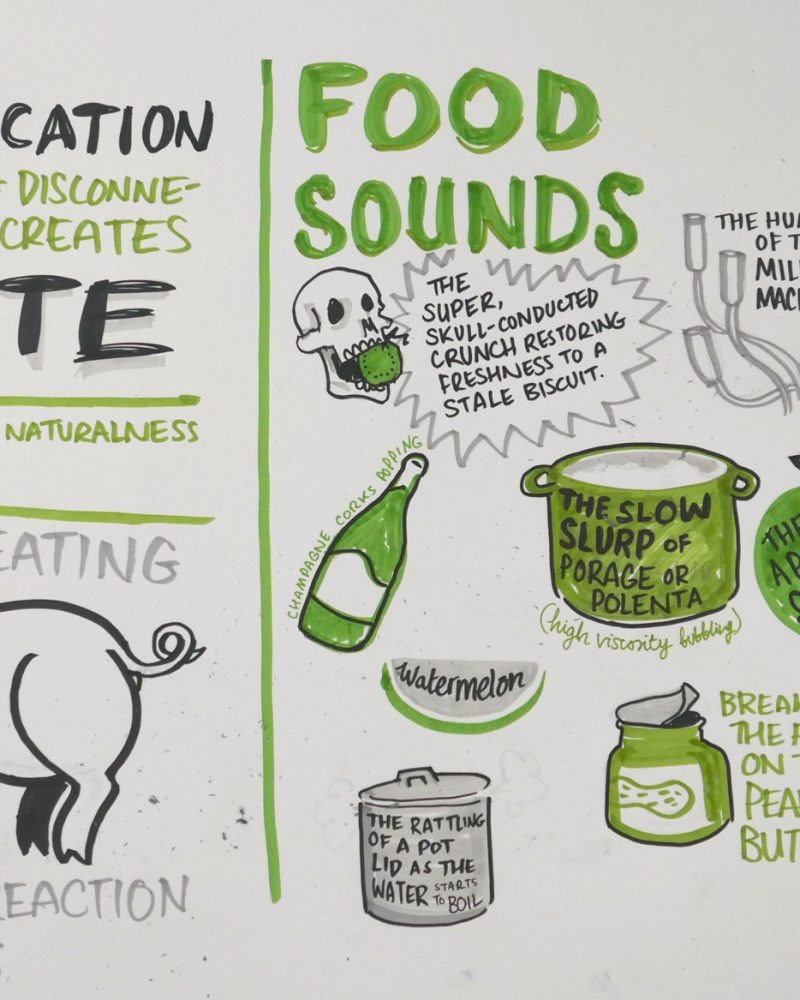 CATION
DISCONNE-
CREATES
TE
NATURALNESS
EATING
REACTION
FOOD
SOUNDS
THE
SUPER,
SKULL-CONDUCTED
CRUNCH RESTORING
FRESHNESS TO A
STALE BISCUIT.
THE HUM
OF T
MIL
MAC
CHAMPAGNE CORKS POPPING
THE SLOW
SLURP OF
PORAGE OR
POLENTA
(high viscosity bubbling)
THE
AP
Watermelon
BREA
THE
ON T
PEA
BUT
THE RATTLING
OF A POT
LID AS THE
WATER STARTS
TO BOIL